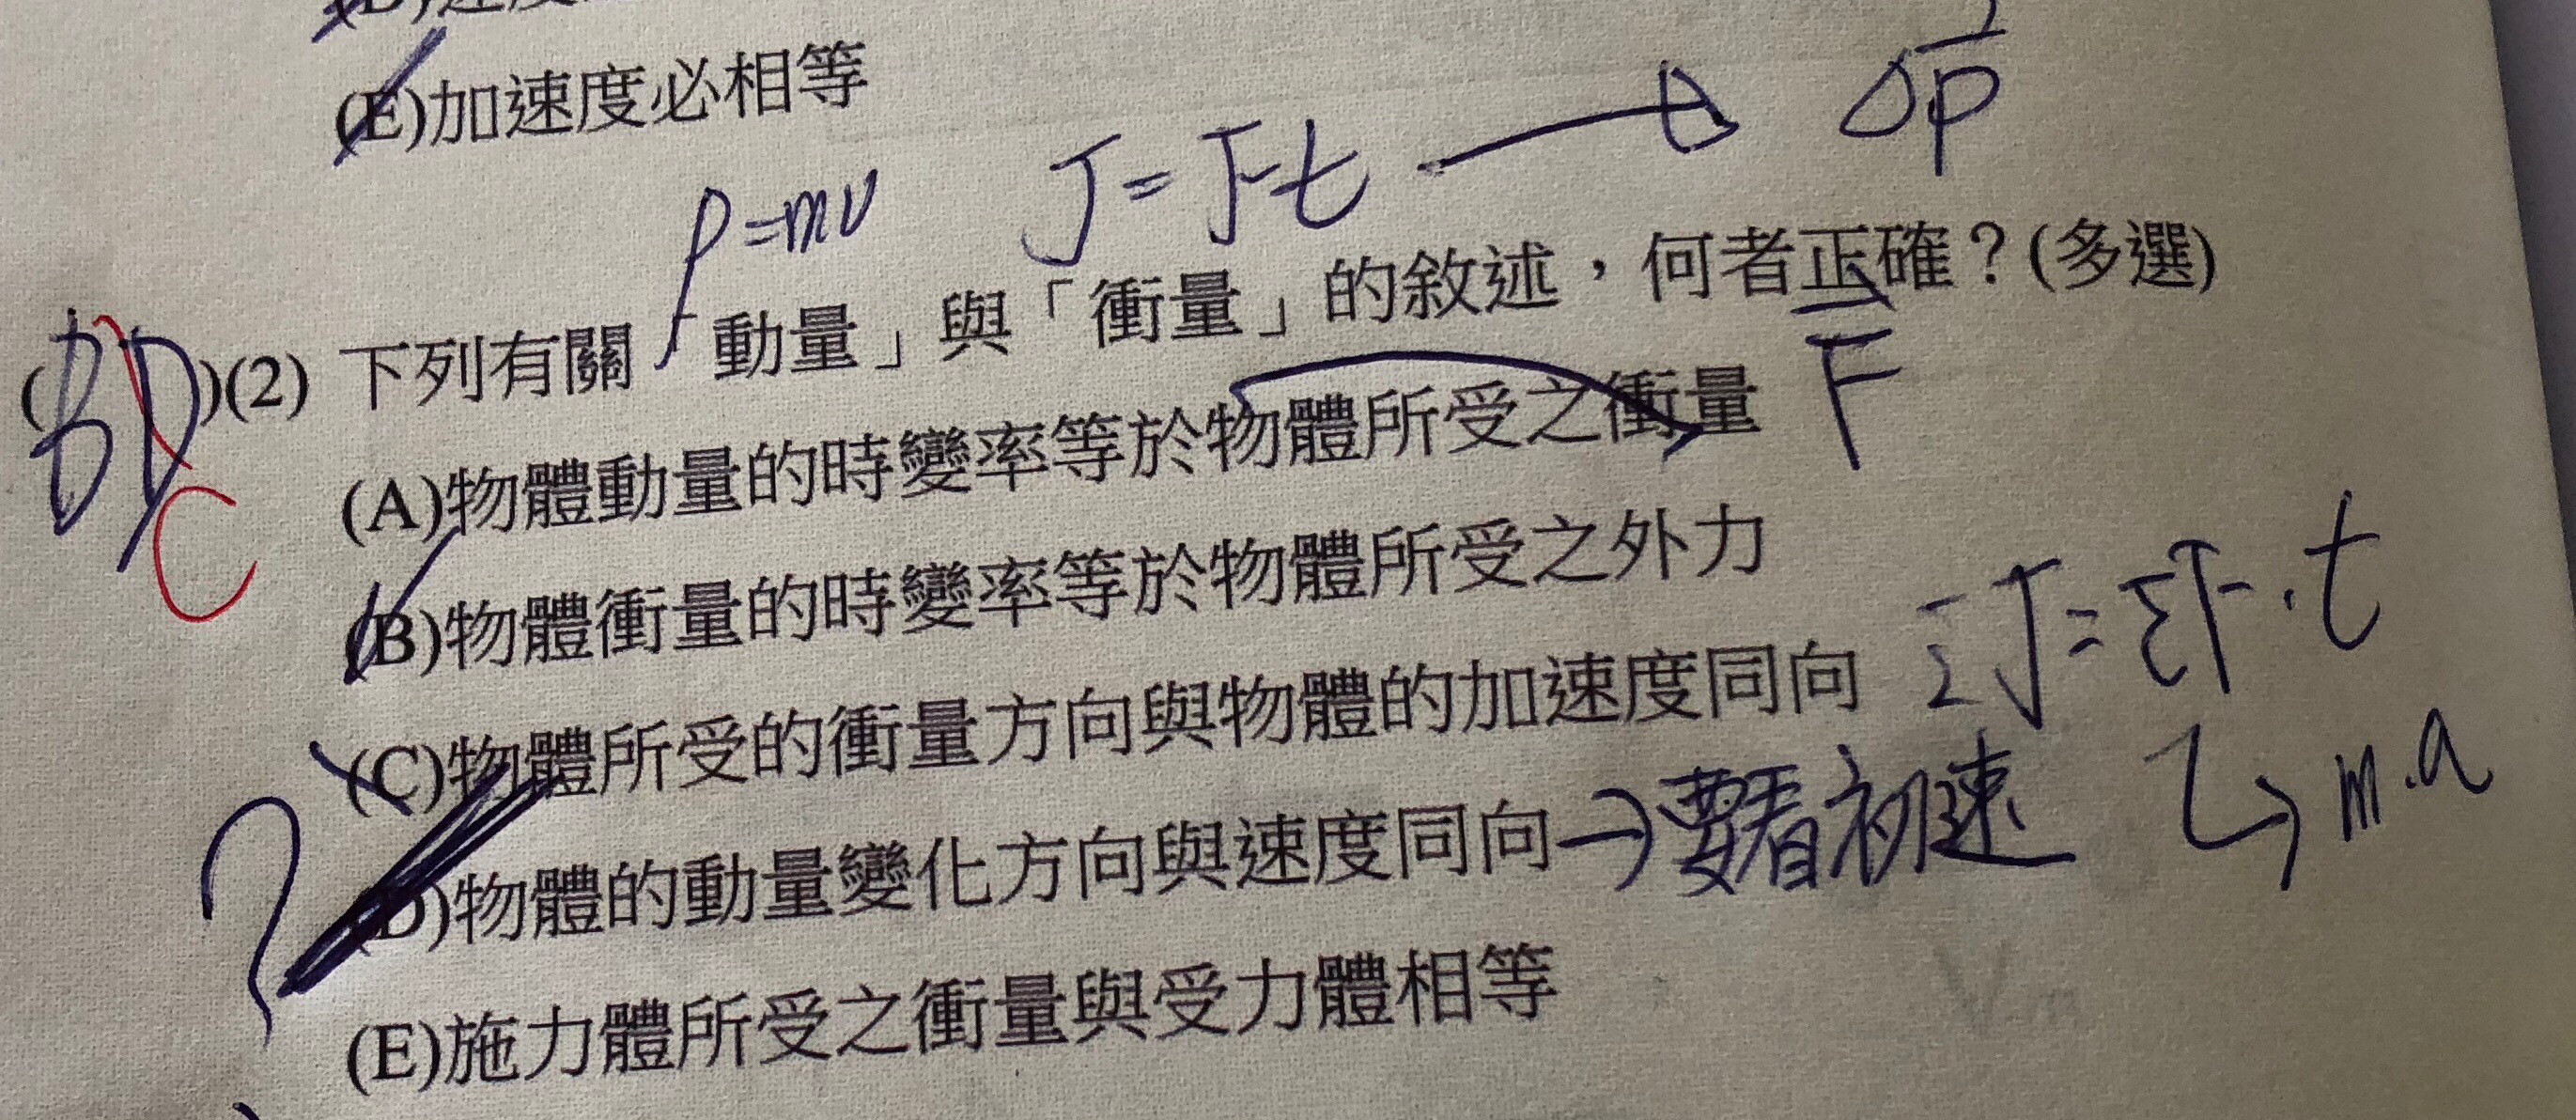 (E)加速度必相等
P=mv J=Ft → Δp
(BD)(2) 下列有關「動量」與「衝量」的敘述，何者正確？(多選)
C
(A)物體動量的時變率等於物體所受之衝量 F
(B)物體衝量的時變率等於物體所受之外力
(C)物體所受的衝量方向與物體的加速度同向 ΣJ=ΣF·t
m.a
(D)物體的動量變化方向與速度同向→要看初速
?
(E)施力體所受之衝量與受力體相等